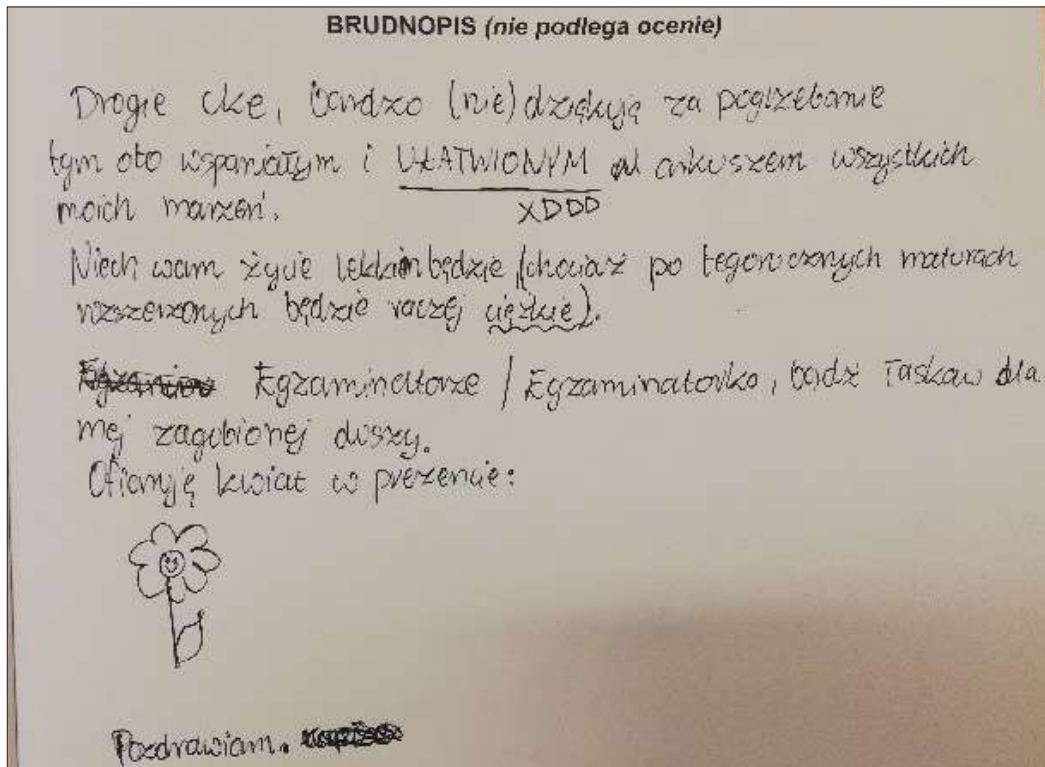 BRUDNOPIS (nie podlega ocenie)
Drogie cke, bardzo (nie) dziękuję za pogrzebanie
tym oto wspaniałym i UŁATWIONYM arkuszem wszystkich
moich marzeń.
XDDD
Niech wam życie lekkim będzie (chociaż po tegorocznych maturach
rozszerzonych będzie raczej ciężkie).
Egzaminatorze / Egzaminatorko, bądź łaskaw dla
mej zagubionej duszy.
Ofiaruję kwiat w prezencie:
Pozdrawiam.